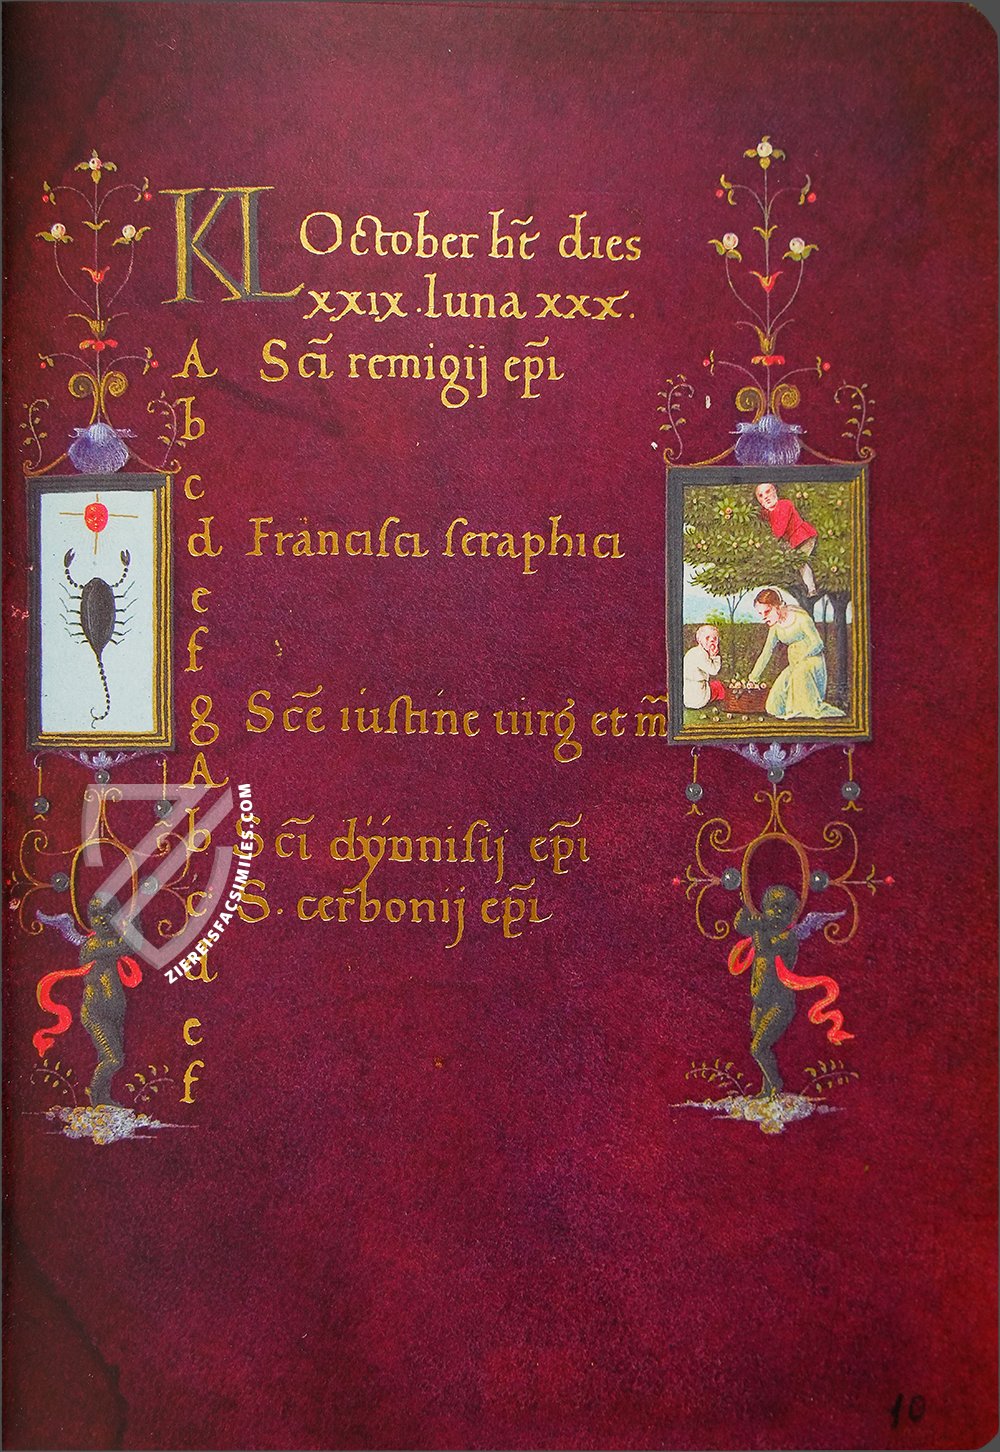 KL October hr̃ dies
xxix . luna xxx.
A Sc̃i remigij ep̃i
b
c
d Francisci seraphici
e
f
g Sc̃e iustine uirg̃ et m̃
A
b Sc̃i dÿonisij ep̃i
c S. cerbonij ep̃i
d
e
f
ZIEREISFACSIMILES.COM
10